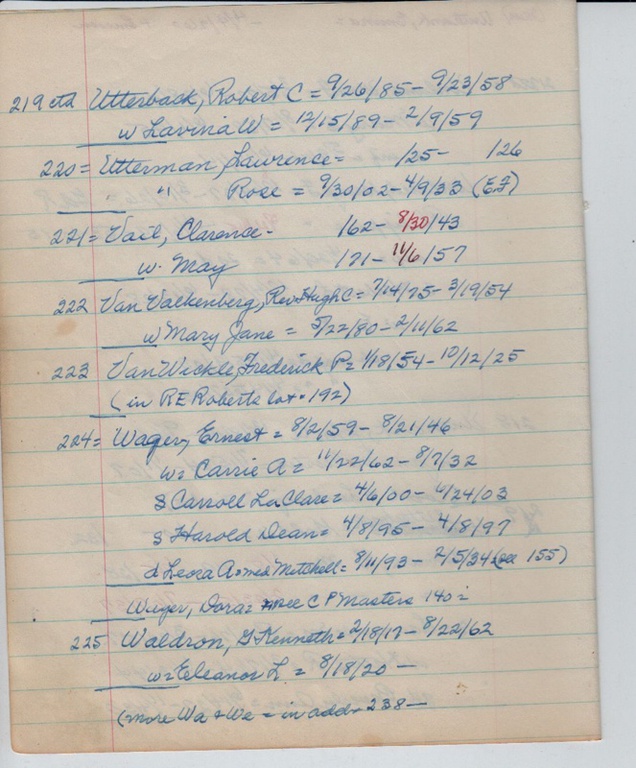 219 ctd Utterback, Robert C = 9/26/85 - 9/23/58
w Lavina W = 12/15/89 - 2/9/59
220 = Utterman, Lawrence = /25 - /26
" " Rose = 9/30/02 - 4/9/33 (EF)
221 = Vail, Clarence - /62 - 8/30/43
w. May /71 - 11/6/57
222 Van Valkenberg, Rev. Hugh C = 7/14/75 - 3/19/54
w Mary Jane = 5/22/80 - 2/11/62
223 Van Wickle, Frederick P = 1/18/54 - 10/12/25
(in RE Roberts lot = 192)
224 = Wager, Ernest = 8/2/59 - 8/21/46
w = Carrie A = 11/22/62 - 8/7/32
s Carroll LaClare = 4/6/00 - 6/24/03
s Harold Dean = 4/8/95 - 4/8/97
d Leora A = med Mitchell = 8/11/93 - 2/5/34 (see 155)
Weyer, Dora = see C P Masters 140 =
225 Waldron, G Kenneth = 2/18/17 - 8/22/62
w = Eeleanor L. = 8/18/20 -
(more Wa + We = in add. 238 -